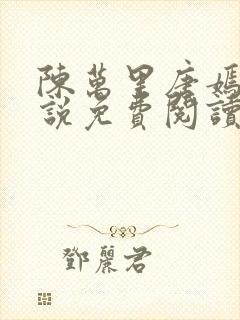 陳萬里唐嫣
說免費閱讀
鄧麗君